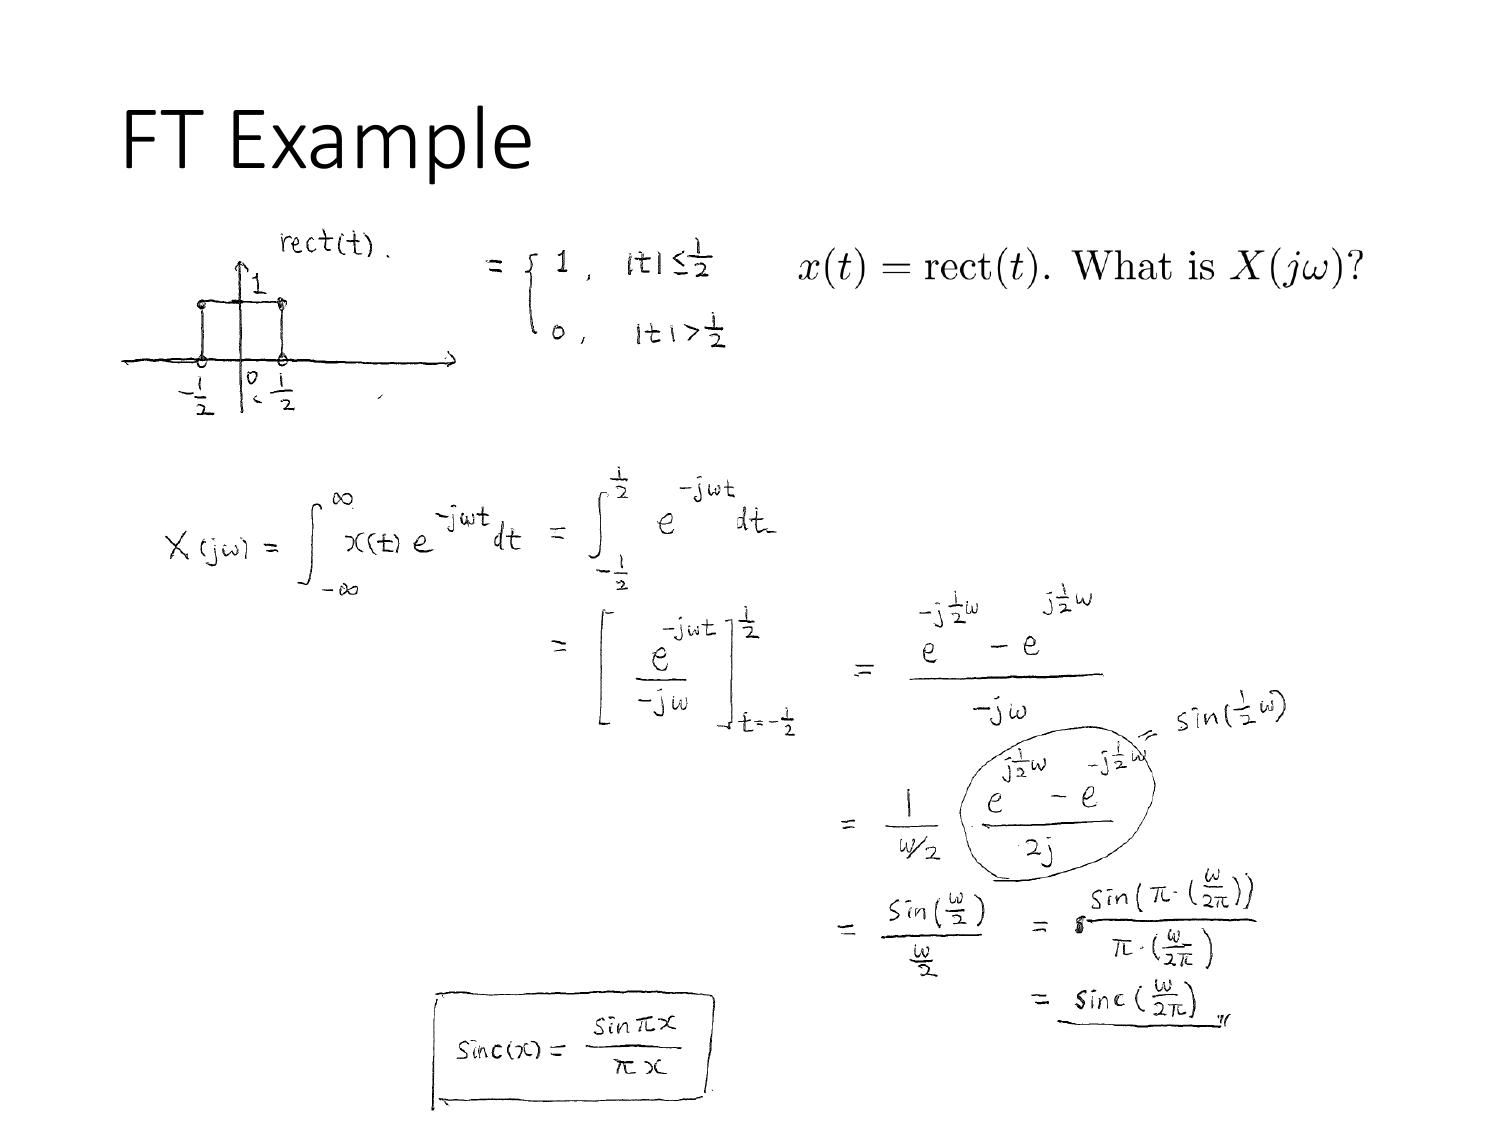 FT Example
rect(t).
= { 1 , |t| ≤ 1/2
0 , |t| > 1/2
x(t) = rect(t). What is X(jω)?
1
-1/2 0 1/2
X(jω) = ∫_{-∞}^{∞} x(t) e^{-jωt} dt = ∫_{-1/2}^{1/2} e^{-jωt} dt
= [ e^{-jωt} / -jω ]_{t=-1/2}^{1/2} = (e^{-j 1/2 ω} - e^{j 1/2 ω}) / -jω
= 1/(ω/2) (e^{j 1/2 ω} - e^{-j 1/2 ω}) / 2j = sin(1/2 ω)
= sin(ω/2) / (ω/2) = sin(π·(ω/2π)) / π·(ω/2π)
= sinc(ω/2π)
sinc(x) = sin πx / πx